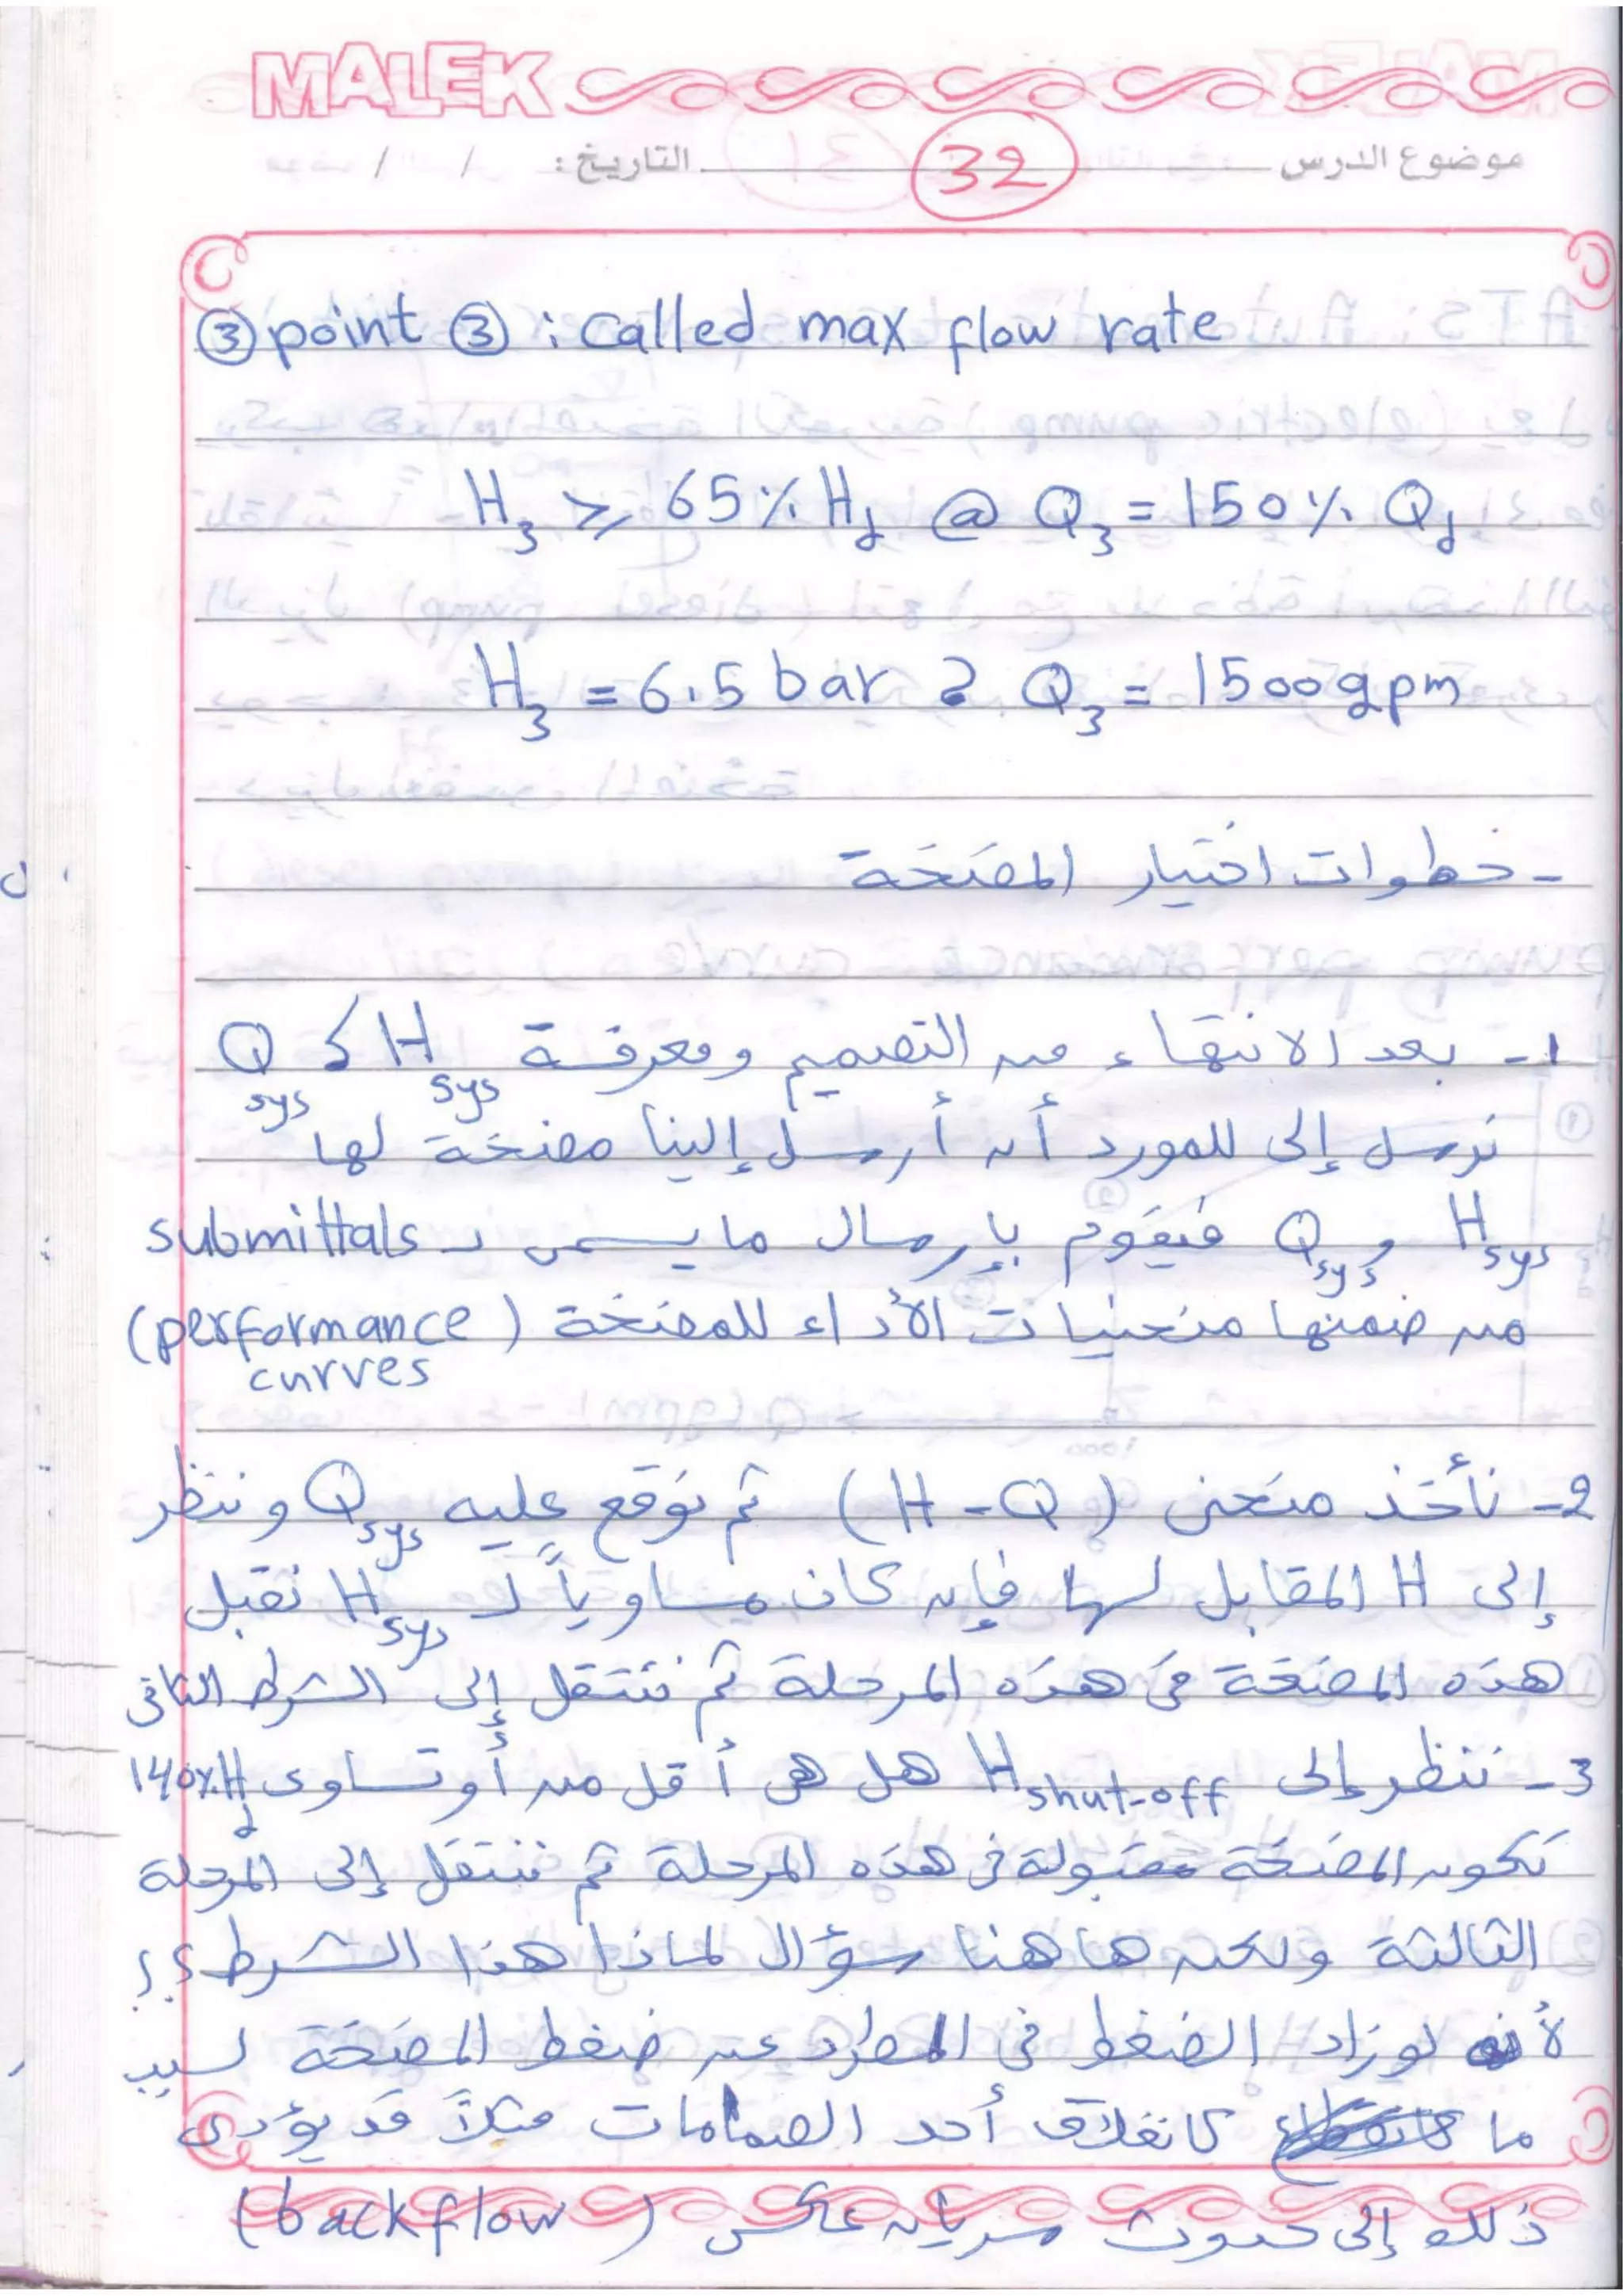 MALEK
موضوع الدرس 32 التاريخ: / /
③ point ③ : called max flow rate
H3 ≥ 65% Hd @ Q3 = 150% Qd
H3 = 6.5 bar و Q3 = 1500 gpm
- خطوات اختيار المضخة
1- بعد الانتهاء من التصميم ومعرفة Hsys و Qsys
نرسل إلى المورد أن أرسل إلينا مضخة لها
Hsys و Qsys فيقوم بإرسال ما يسمى بـ submittals
من ضمنها منحنيات الأداء للمضخة (performance
curves
2- نأخذ منحنى (H-Q) ثم نوقع عليه Qsys وننظر
إلى H المقابل لها فإن كان مساوياً لـ Hsys نقبل
هذه المضخة في هذه المرحلة ثم ننتقل إلى الشرط الثاني
3- ننظر إلى Hshut-off هل هي أقل من أو تساوى 140% Hd
تكون المضخة مقبولة في هذه المرحلة ثم ننتقل إلى المرحلة
الثالثة ولكن ها هنا سؤال لماذا هذا الشرط؟؟
لأنه لو زاد الضغط في الطرد عن ضغط المضخة لسبب
ما كانغلاق أحد الصمامات مثلاً قد يؤدى
ذلك إلى حدوث سريان عكس (backflow)